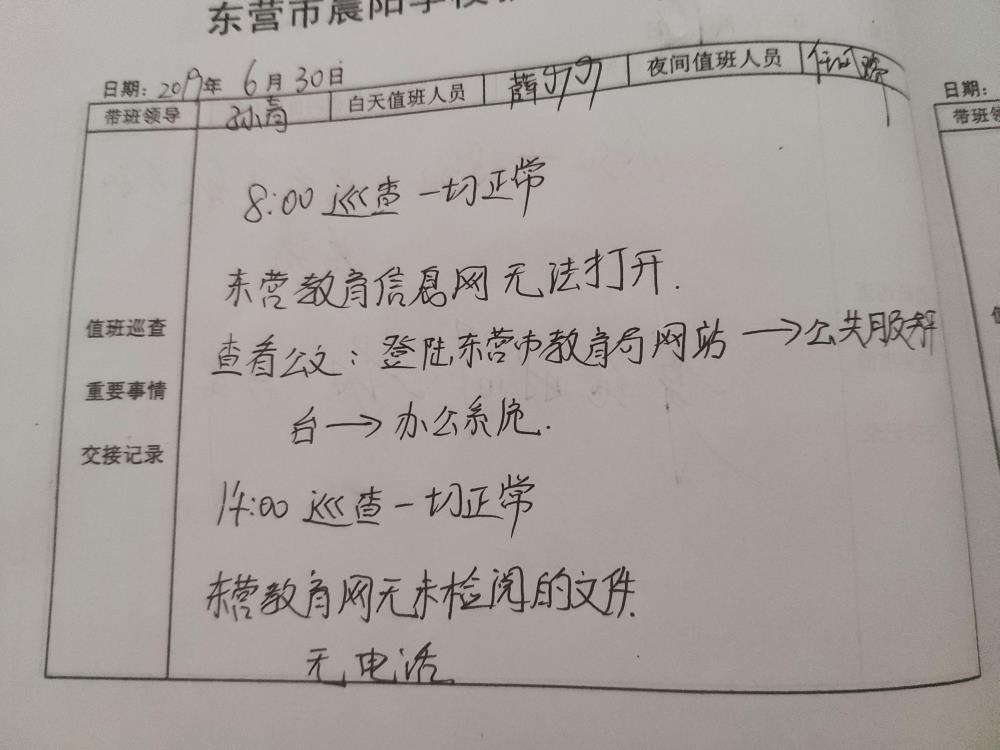 东营市晨阳学校
日期：2019年 6月30日
带班领导 孙青 白天值班人员 薛 夜间值班人员 任
值班巡查
重要事情
交接记录
8:00 巡查一切正常
东营教育信息网无法打开.
查看公文：登陆东营市教育局网站→公共服务
台→办公系统.
14:00 巡查一切正常
东营教育网无未检阅的文件.
无电话
日期：
带班领